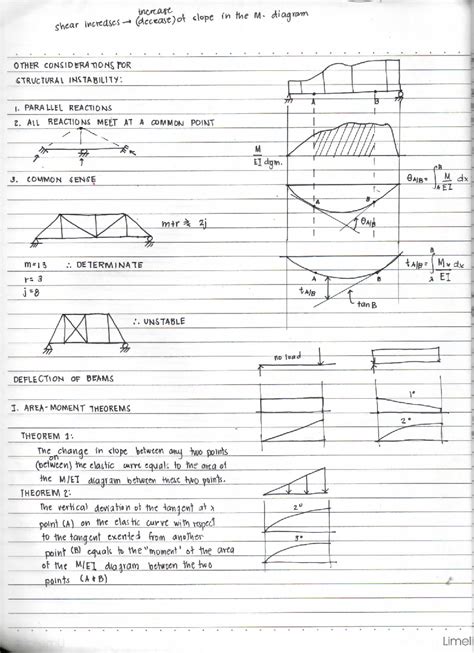 increase
shear increases → (decrease) of slope in the M. diagram
OTHER CONSIDERATIONS FOR
STRUCTURAL INSTABILITY:
1. PARALLEL REACTIONS
2. ALL REACTIONS MEET AT A COMMON POINT
3. COMMON SENSE
m+r ≥ 2j
m=13 ∴ DETERMINATE
r= 3
j=8
∴ UNSTABLE
DEFLECTION OF BEAMS
I. AREA-MOMENT THEOREMS
THEOREM 1:
The change in slope between any two points
on
(between) the elastic curve equals to the area of
the M/EI diagram between these two points.
THEOREM 2:
The vertical deviation of the tangent at x
point (A) on the elastic curve with respect
to the tangent exented from another
point (B) equals to the "moment" of the area
of the M/EI diagram between the two
points (A & B)
A B
M
EI dgm.
θA/B = ∫ M dx
EI
A B
θA/B
A B
tA/B = ∫ Mx dx
EI
tA/B
tan B
no load
1°
2°
2°
3°
Limell